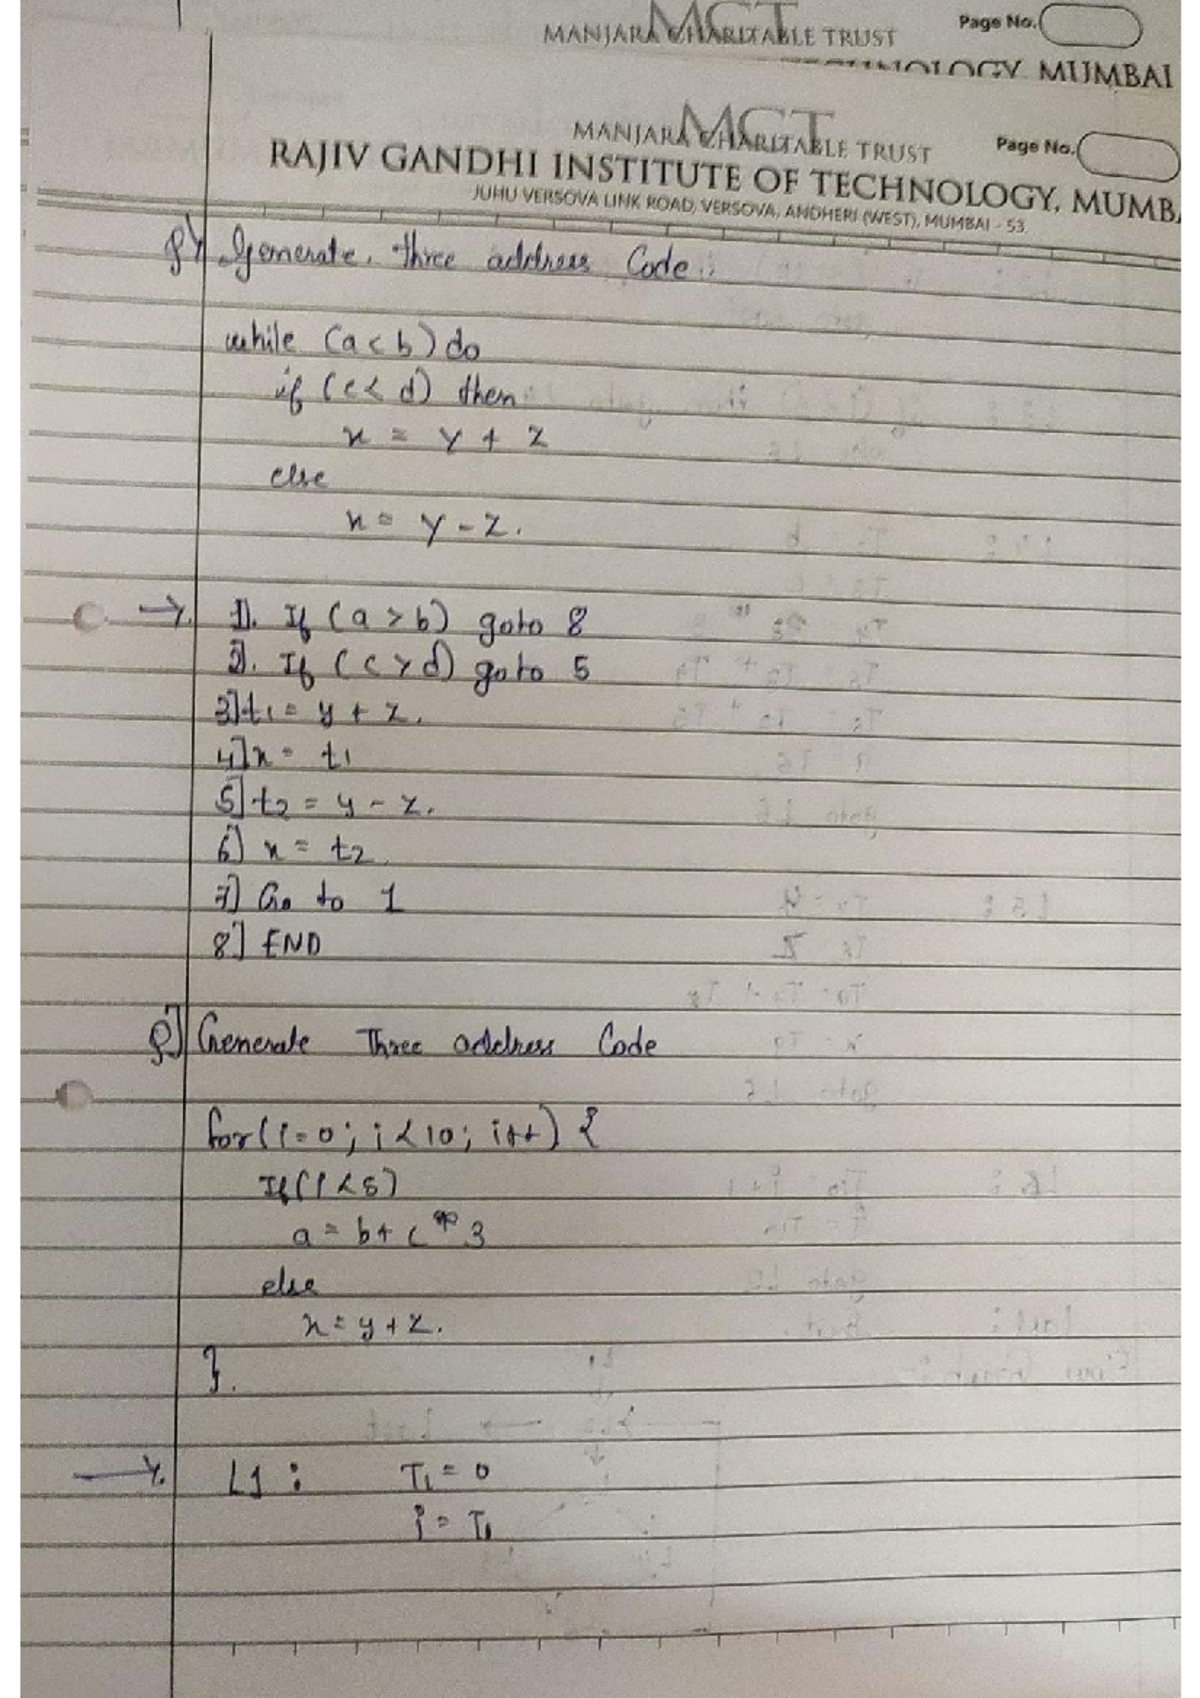 MCT
MANJARA CHARITABLE TRUST
Page No.
MUMBAI
MCT
MANJARA CHARITABLE TRUST
Page No.
RAJIV GANDHI INSTITUTE OF TECHNOLOGY, MUMB
JUHU VERSOVA LINK ROAD, VERSOVA, ANDHERI (WEST), MUMBAI - 53
Q] Generate three address Code :
while (a < b) do
if (c < d) then
x = y + z
else
x = y - z.
→ 1]. If (a > b) goto 8
2]. If (c > d) goto 5
3] t1 = y + z.
4] x = t1
5] t2 = y - z.
6] x = t2
7] Go to 1
8] END
Q] Generate Three address Code
for(i=0; i<10; i++) {
If(i<5)
a = b + c * 3
else
x = y + z.
}.
→ L1 : T1 = 0
i = T1